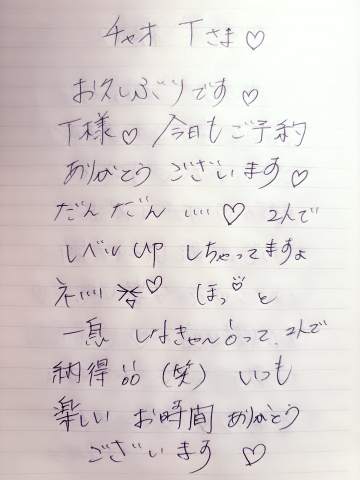 チャオ Tさま♡
お久しぶりです♡
T様♡ 今日もご予約
ありがとうございます♡
だんだん……♡ 2人で
レベルUPしちゃってますよ
ネ……♡ ほっと
一息 しなきゃんって、2人で
納得品(笑) いつも
楽しいお時間ありがとう
ございます♡